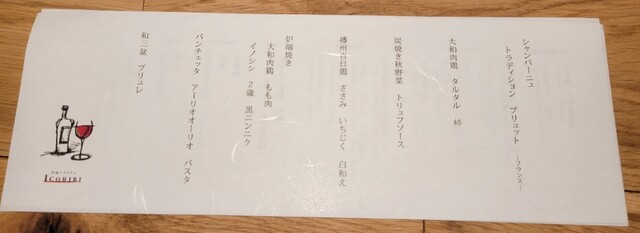 シャンパーニュ
トラディション ブリュット ―フランス―
大和肉鶏 タルタル 柿
炭焼き秋野菜 トリュフソース
播州百日鶏 ささみ いちじく 白和え
炉端焼き
大和肉鶏 もも肉
イノシシ 2歳 黒ニンニク
パンチェッタ アーリオオーリオ パスタ
和三盆 ブリュレ